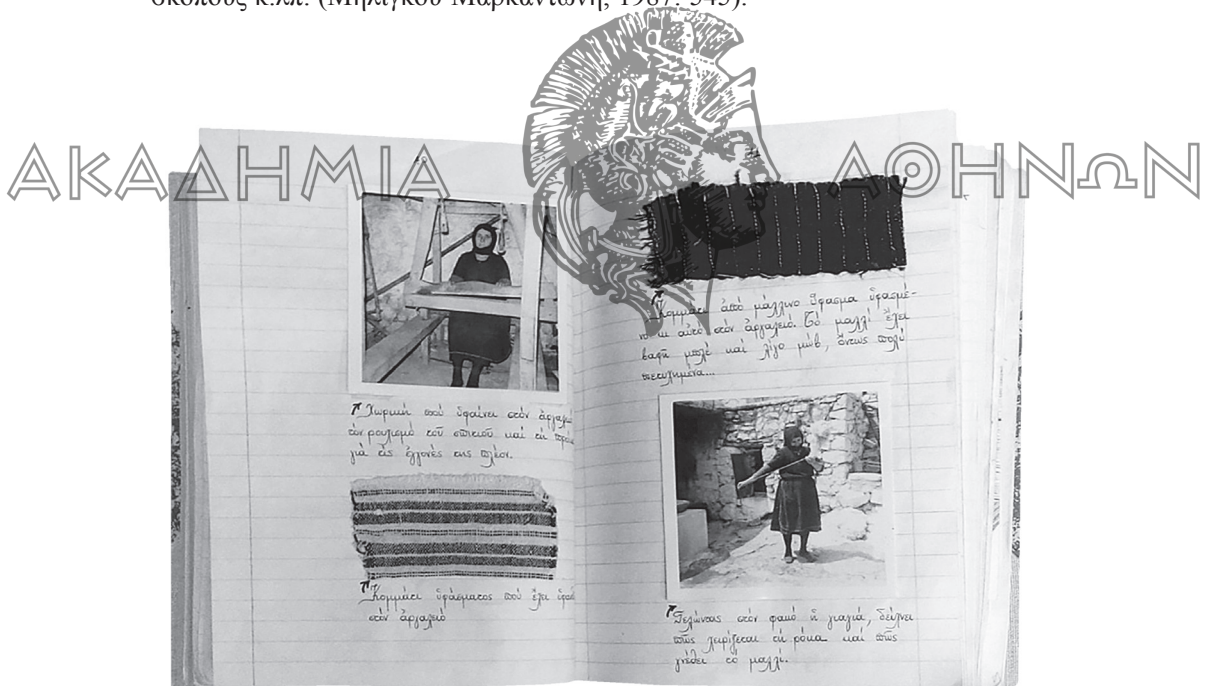 σκοπούς κ.λπ. (Μηλίγκου-Μαρκαντώνη, 1987: 345).
ΑΚΑΔΗΜΙΑ ΑΘΗΝΩΝ
Χωρική ποὺ ὑφαίνει στὸν ἀργαλειό
τὸν ρουχισμὸ τοῦ σπιτιοῦ καὶ τὴ
γιὰ τὶς ἐγγονές της πλέον.
Κομμάτι ὑφάσματος ποὺ ἔχει
στὸν ἀργαλειό
Κομμάτι ἀπὸ μάλλινο ὕφασμα ὑφασμέ-
νο κι αὐτὸ στὸν ἀργαλειό. Τὸ μαλλὶ ἔχει
βαφῆ μπλὲ καὶ λίγο μώβ, ὄντως πολὺ
πετυχημένα...
Γελώντας στὸν φακὸ ἡ γιαγιά, δείχνει
πῶς χειρίζεται τὴ ρόκα καὶ πῶς
γνέθει τὸ μαλλί.